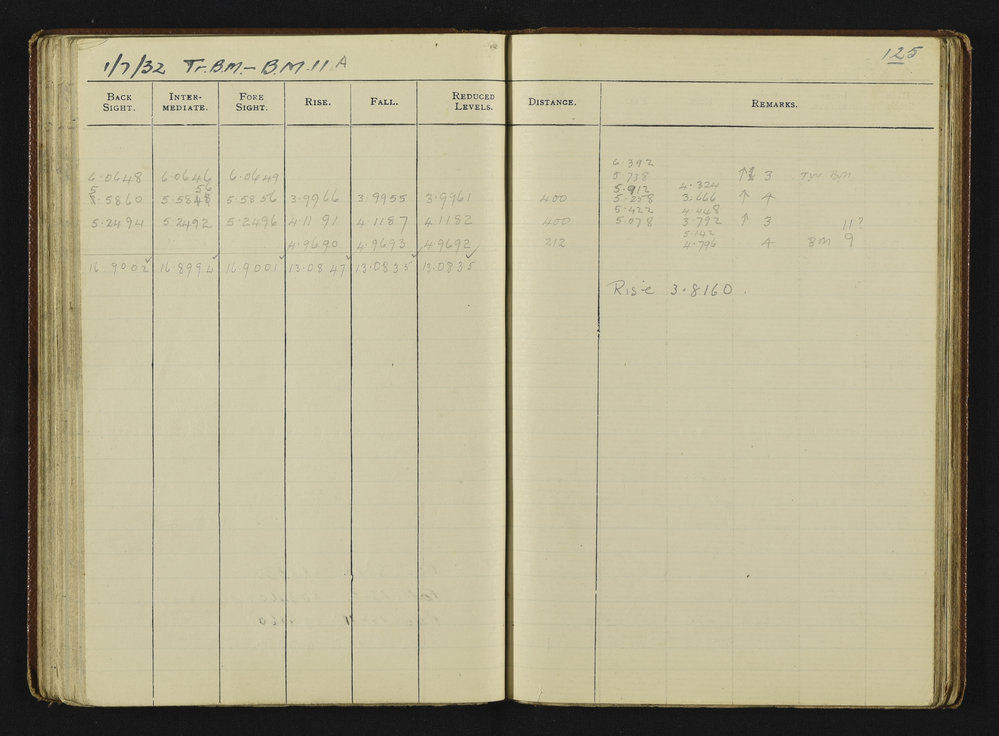 125
1/7/32 Tr.B.M. – B.M. 11 A
BACK SIGHT. INTER-MEDIATE. FORE SIGHT. RISE. FALL. REDUCED LEVELS. DISTANCE. REMARKS.
6.392
6.0648 6.0646 6.0649 5.738 ↑ 3 TW BM
5 56 5.912 4.324
5.5860 5.5848 5.5856 3.9966 3.9955 3.9961 400 5.258 3.666 ↑ 4
5.422 4.448
5.2494 5.2492 5.2496 4.1191 4.1187 4.1182 400 5.078 3.792 ↑ 3 11?
5.142
4.9690 4.9693 4.9692 212 4.796 4 BM 9
16.9002 16.8994 16.9001 13.0847 13.0835 13.0835
Rise 3.8160.